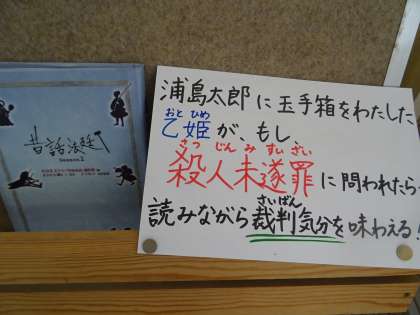 昔話法廷
浦島太郎に玉手箱をわたした
おと ひめ
乙姫が、もし
さつ じん み すい ざい
殺人未遂罪に問われたら
さいばん
読みながら裁判気分を味わえる!